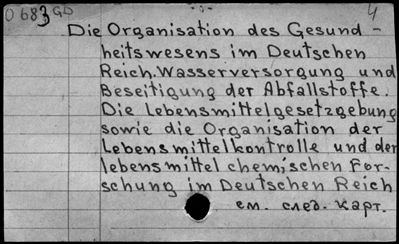 0 683 GD - 3 - 4
Die Organisation des Gesund -
heitswesens im Deutschen
Reich. Wasserversorgung und
Beseitigung der Abfallstoffe.
Die Lebensmittelgesetzgebung
sowie die Organisation der
Lebensmittelkontrolle und der
lebensmittel chemischen For-
schung im Deutschen Reich
см. след. карт.